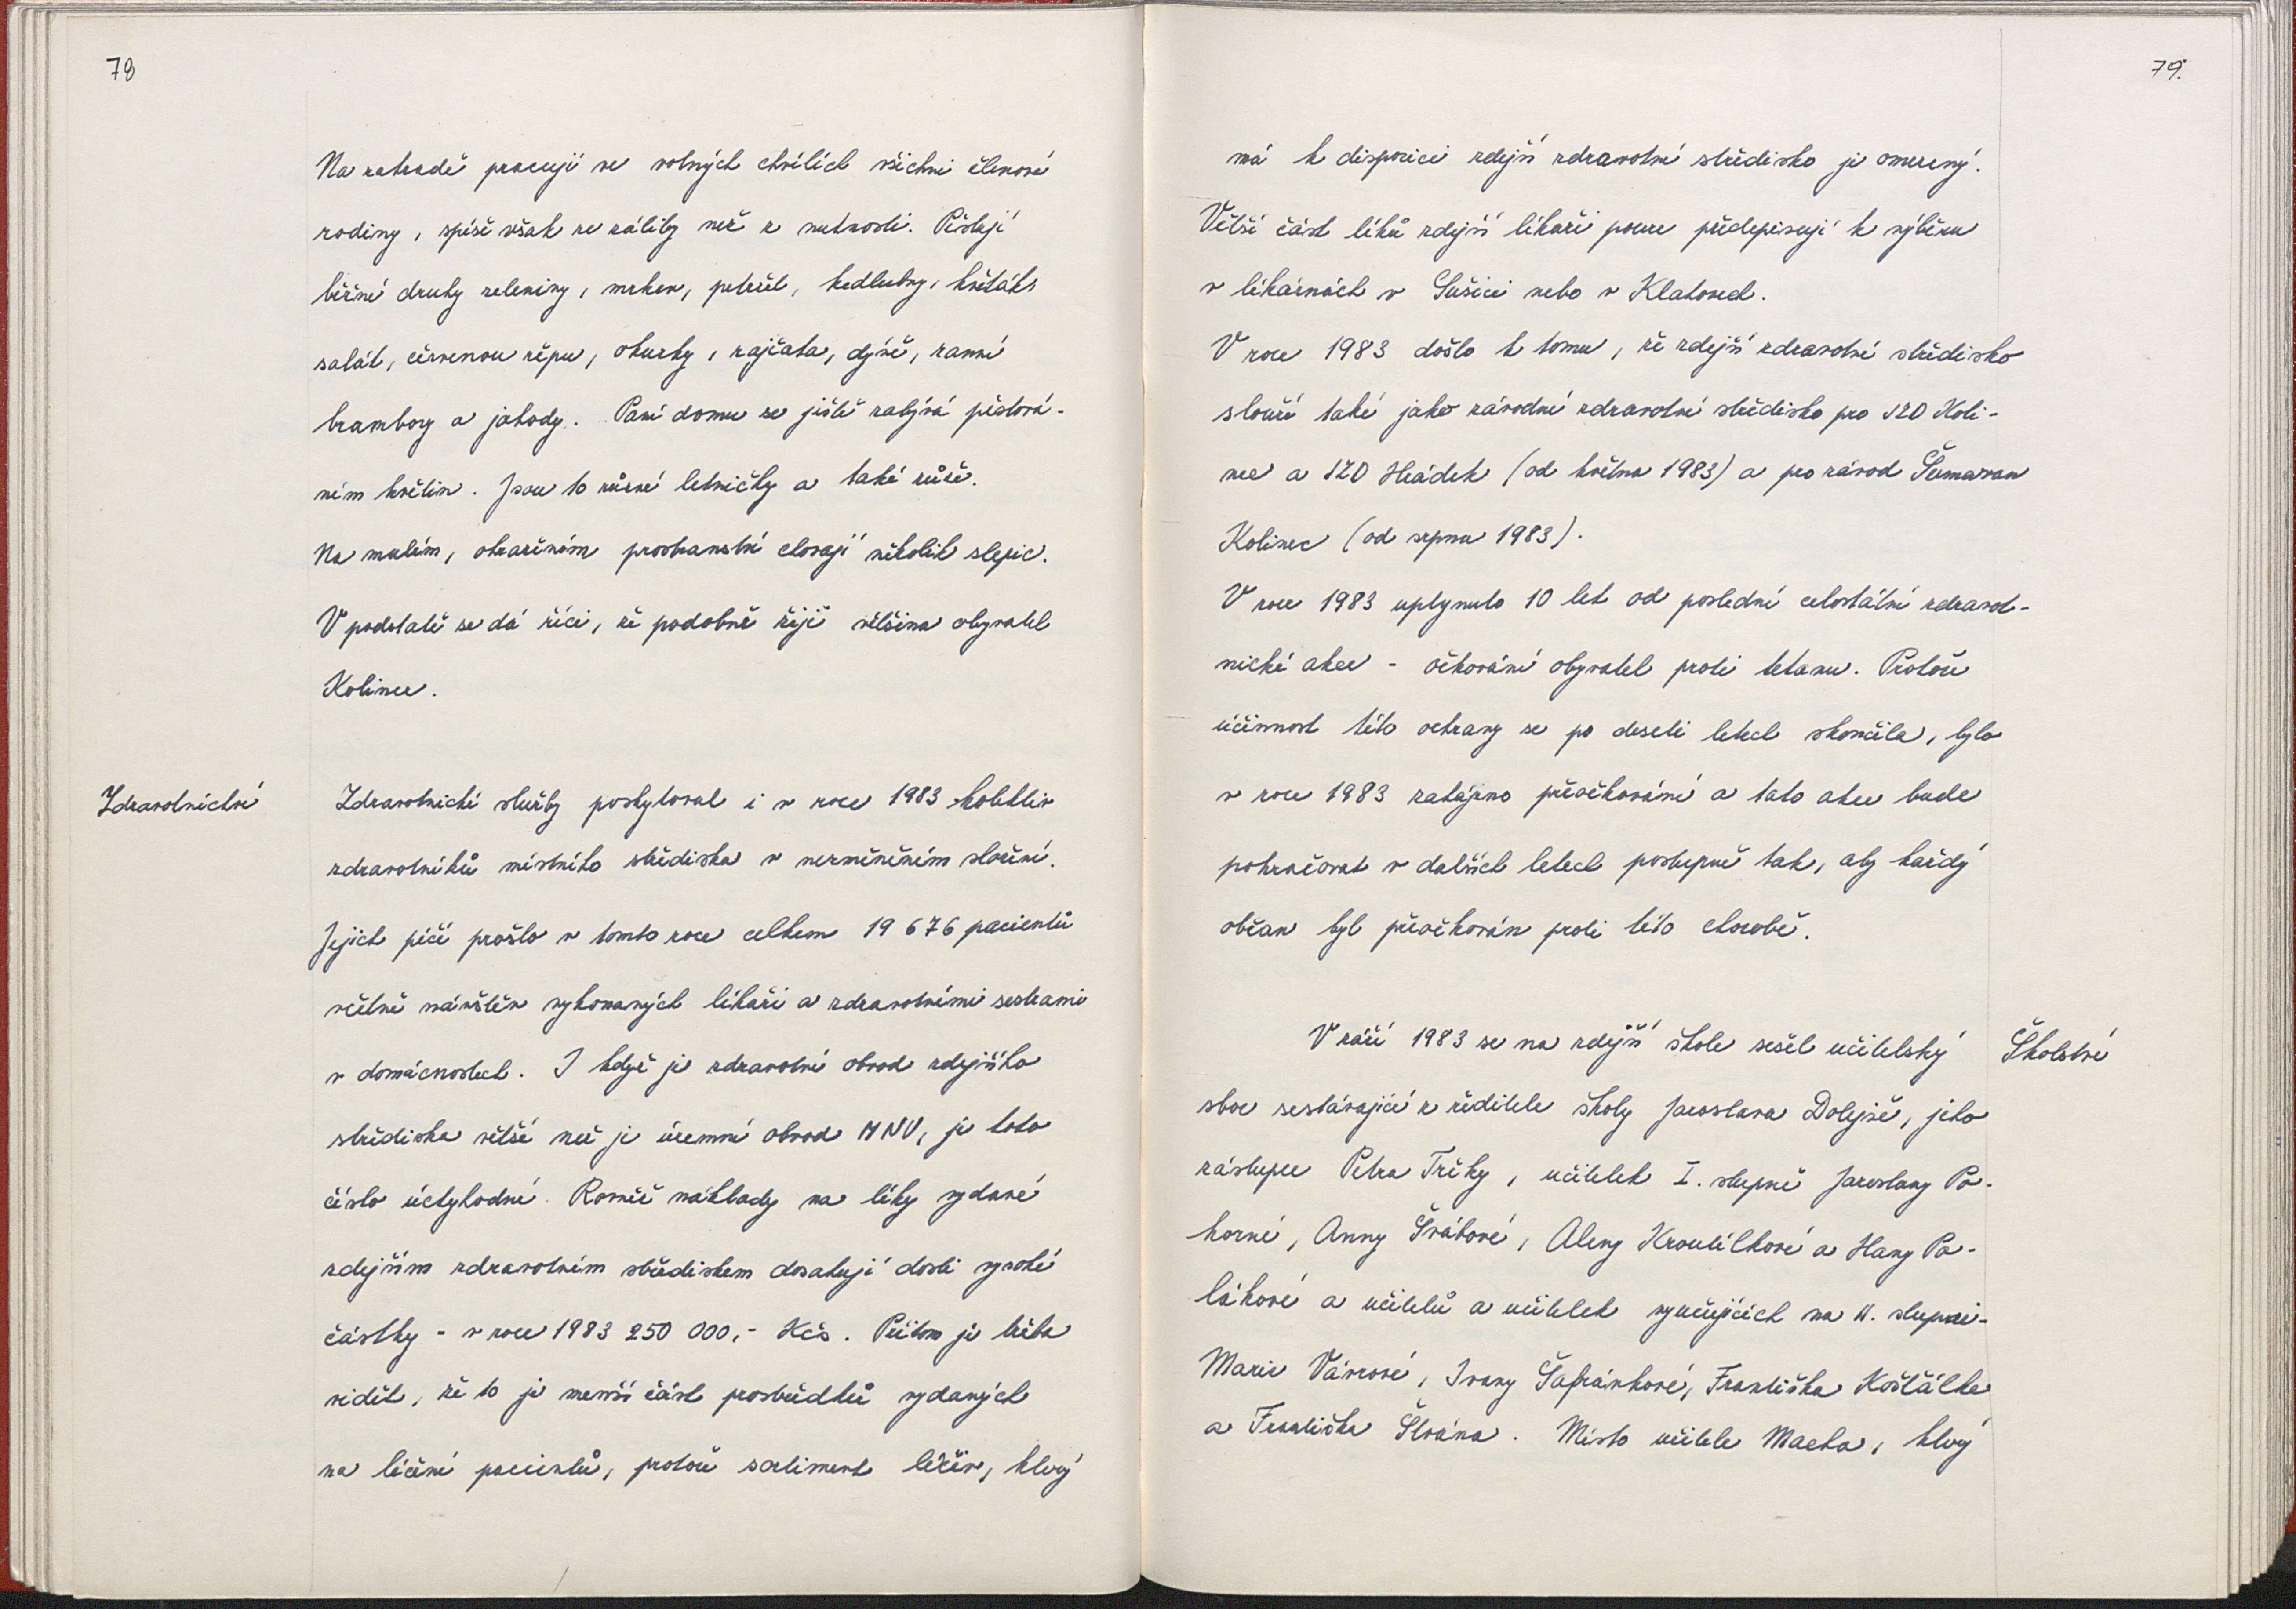 78
Na zahradě pracují ve volných chvílích všichni členové
rodiny, spíše však ze záliby než z nutnosti. Pěstují
běžné druhy zeleniny, mrkev, petržel, kedlubny, květák,
salát, červenou řepu, okurky, rajčata, dýně, ranné
brambory a jahody. Paní domu se jistě zabývá pěstová-
ním květin. Jsou to různé letničky a také růže.
Na malém, ohraženém prostranství chovají několik slepic.
V podstatě se dá říci, že podobně žije většina obyvatel
Kolince.
Zdravotnictví
Zdravotnické služby poskytoval i v roce 1983 kolektiv
zdravotníků místního střediska v nezměněném složení.
Jejich péčí prošlo v tomto roce celkem 19 676 pacientů
včetně návštěv vykonaných lékaři a zdravotními sestrami
v domácnostech. I když je zdravotní obvod zdejšího
střediska větší než je územní obvod MNV, je toto
číslo úctyhodné. Rovněž náklady na léky vydané
zdejším zdravotním střediskem dosahují dosti vysoké
částky - v roce 1983 250 000,- Kčs. Přitom je třeba
vidět, že to je menší část prostředků vydaných
na léčení pacientů, protože sortiment léčiv, který
79.
má k dispozici zdejší zdravotní středisko je omezený.
Větší část léků zdejší lékaři pouze předepisují k výběru
v lékárnách v Sušici nebo v Klatovech.
V roce 1983 došlo k tomu, že zdejší zdravotní středisko
slouží také jako závodní zdravotní středisko pro JZD Koli-
nec a JZD Hrádek (od května 1983) a pro závod Šumavan
Kolinec (od srpna 1983).
V roce 1983 uplynulo 10 let od poslední celostátní zdravot-
nické akce - očkování obyvatel proti tetanu. Protože
účinnost této ochrany se po deseti letech skončila, bylo
v roce 1983 zahájeno přeočkování a tato akce bude
pokračovat v dalších letech postupně tak, aby každý
občan byl přeočkován proti této chorobě.
Školství
V září 1983 se na zdejší škole sešel učitelský
sbor sestávající z ředitele školy Jaroslava Dolejše, jeho
zástupce Petra Trčky, učitelek I. stupně Jaroslavy Po-
korné, Anny Švábové, Aleny Kroutilkové a Hany Po-
lákové a učitelů a učitelek vyučujících na II. stupni -
Marie Vávrové, Ivany Šafránkové, Františka Košťálka
a Františka Slvána. Místo učitele Macha, který